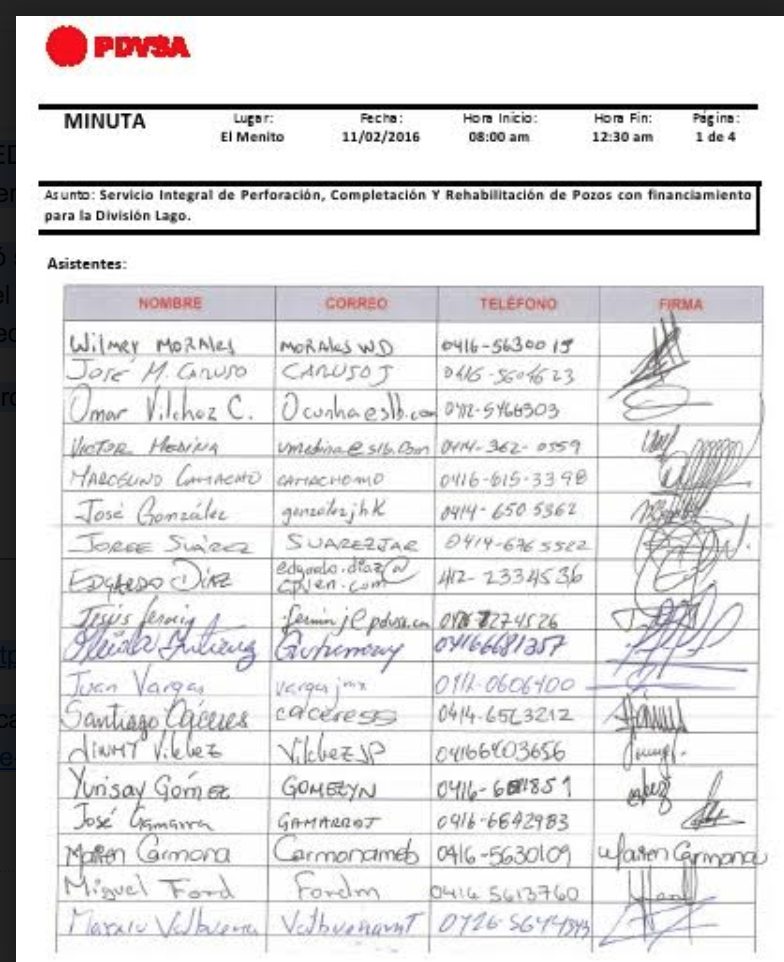 PDVSA
MINUTA Lugar: Fecha: Hora Inicio: Hora Fin: Página:
El Menito 11/02/2016 08:00 am 12:30 am 1 de 4
Asunto: Servicio Integral de Perforación, Completación Y Rehabilitación de Pozos con financiamiento
para la División Lago.
Asistentes:
NOMBRE CORREO TELÉFONO FIRMA
Wilmer MORALES MORALES WD 0416-5630015
José M. CARUSO CARUSOJ 0416-5604623
Omar Vilchez C. Ocunha@slb.com 0412-5466303
VICTOR MEDINA vmedina@slb.com 0414-362-0559
MARCELINO CAMACHO CAMACHOMO 0416-615-3398
José González gonzalezjhk 0414-6505362
JORGE SUÁREZ SUAREZJAR 0414-6765522
EDGARDO DÍAZ edgardo.diaz@
cpven.com 412-2334536
Jesús fermin ferminj@pdvsa.com 7274526
04166681357
Juan Vargas vargasjmx 0606400
Santiago Cáceres caceress 0414-6563212
Vilchez VilchezJP 04166203656
Yurisay Gómez GOMEZYN 0416-6
José Gamarra GAMARRAJ 0416-6642983
Maren Carmona Carmonameb 0416-5630109 Maren Carmona
Miguel Ford Fordm 0416 5613760
Valbuena ValbuenamT 0426-5644